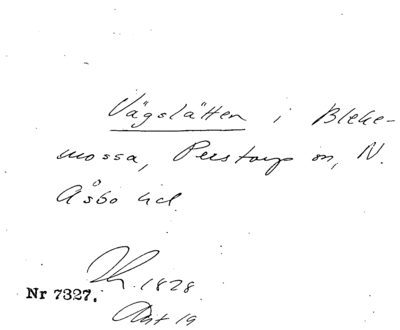 Vägslätten i Bleke-
mossa, Perstorp sn, N.
Åsbo hd.
1828
Nr 7327.
Akt 19